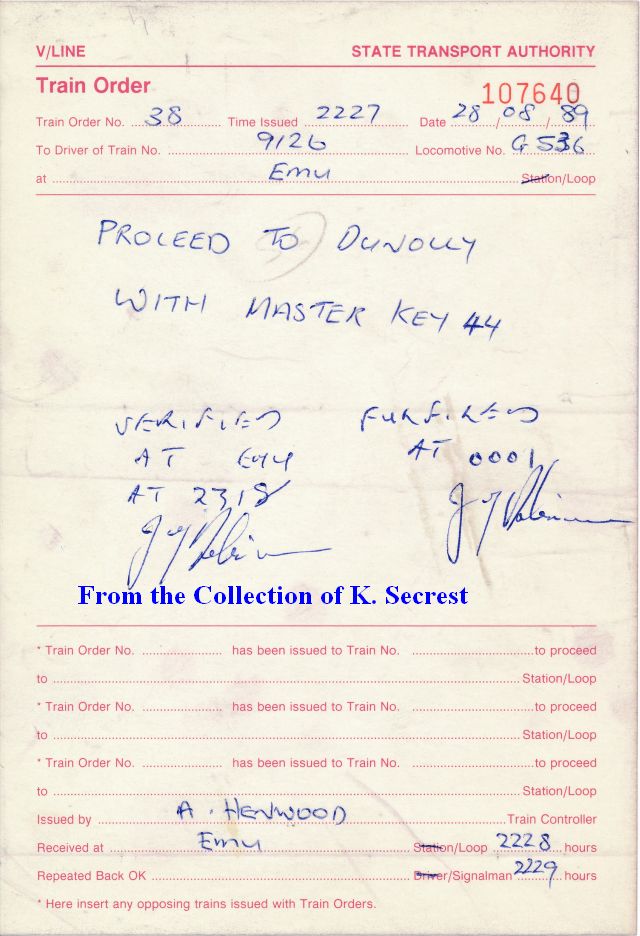 V/LINE STATE TRANSPORT AUTHORITY
Train Order 107640
Train Order No. 38 Time Issued 2227 Date 28/08/89
To Driver of Train No. 9126 Locomotive No. G536
at Emu Station/Loop
PROCEED TO DUNOLLY
WITH MASTER KEY 44
VERIFIED FULFILLED
AT EMU AT 0001
AT 2318
From the Collection of K. Secrest
* Train Order No. has been issued to Train No. to proceed
to Station/Loop
* Train Order No. has been issued to Train No. to proceed
to Station/Loop
* Train Order No. has been issued to Train No. to proceed
to Station/Loop
Issued by A. HENWOOD Train Controller
Received at Emu Station/Loop 2228 hours
Repeated Back OK Driver/Signalman 2229 hours
* Here insert any opposing trains issued with Train Orders.